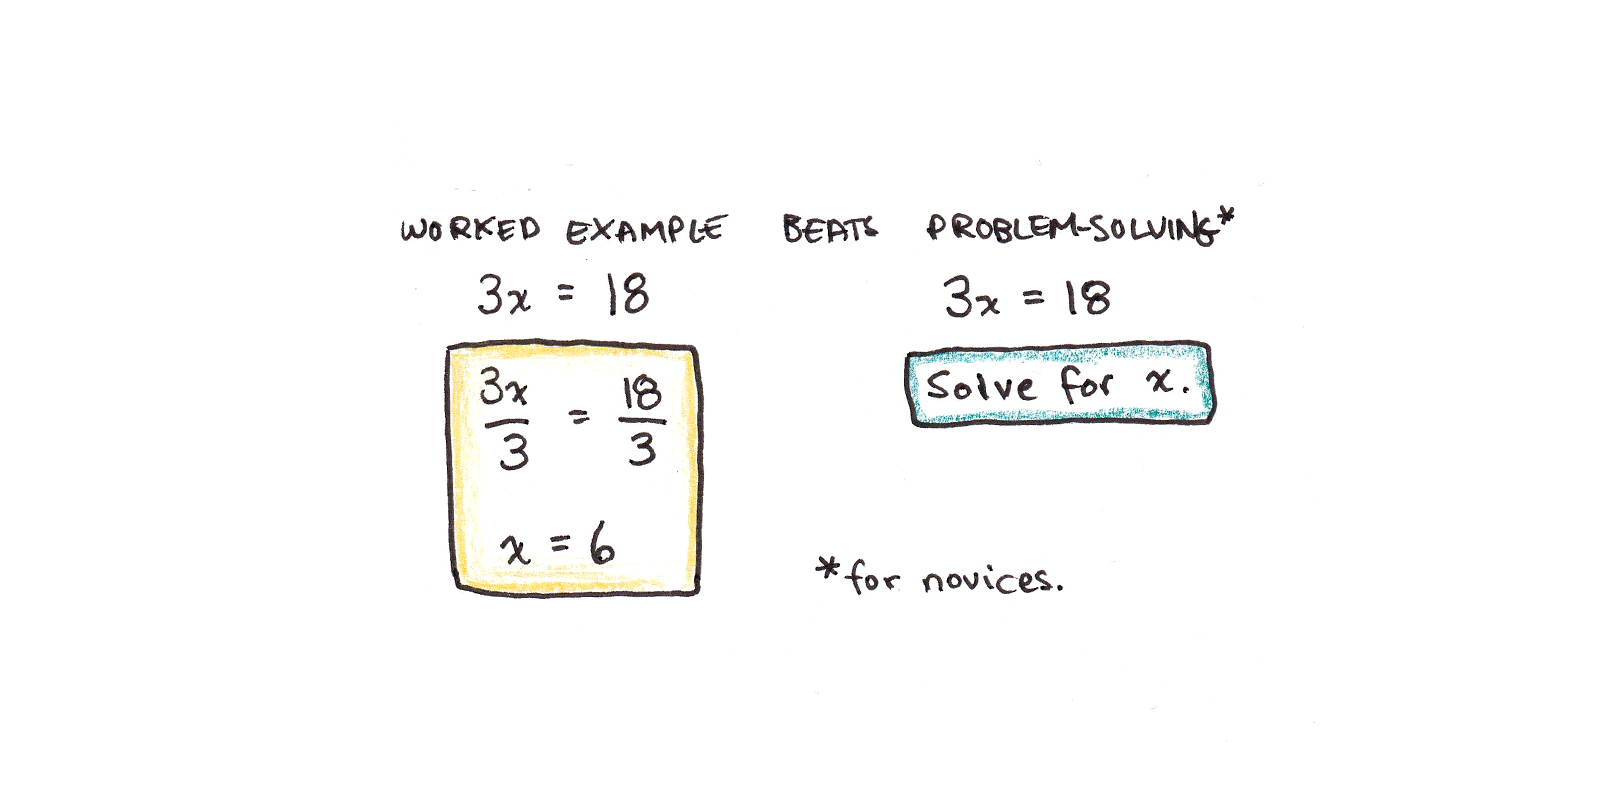 WORKED EXAMPLE BEATS PROBLEM-SOLVING*
3x = 18
3x/3 = 18/3
x = 6
3x = 18
Solve for x.
*for novices.